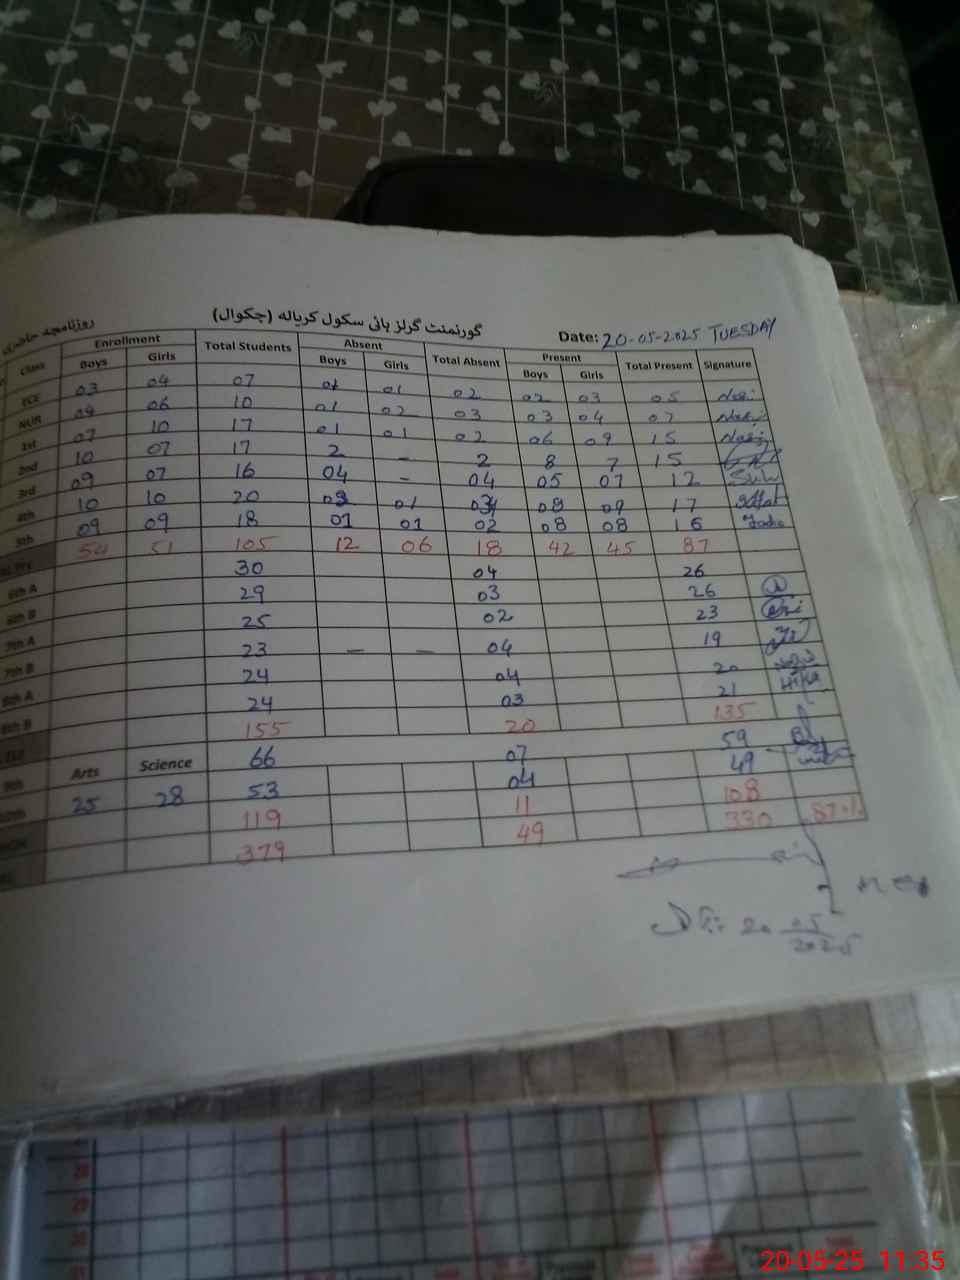 روزنامچہ حاضری گورنمنٹ گرلز ہائی سکول کریالہ (چکوال) Date: 20-05-2025 TUESDAY
Class Enrollment Total Students Absent Total Absent Present Total Present Signature
Boys Girls Boys Girls Boys Girls
ECE 03 04 07 01 01 02 02 03 05
NUR 04 06 10 01 02 03 03 04 07
1st 07 10 17 01 01 02 06 09 15
2nd 10 07 17 2 - 2 8 7 15
3rd 09 07 16 04 - 04 05 07 12
4th 10 10 20 03 01 09 17
5th 09 09 18 01 01 02 08 08 16
54 51 105 12 06 18 42 45 87
6th A 30 04 26
6th B 29 03 26
7th A 25 02 23
7th B 23 — — 04 19
8th A 24 04 20
8th B 24 03 21
155 20 135
9th Arts Science 66 07 59
10th 25 28 53 04 49
119 11 108
379 49 330 87%
20 05
2025
28
29
30
31
20-05-25 11:35